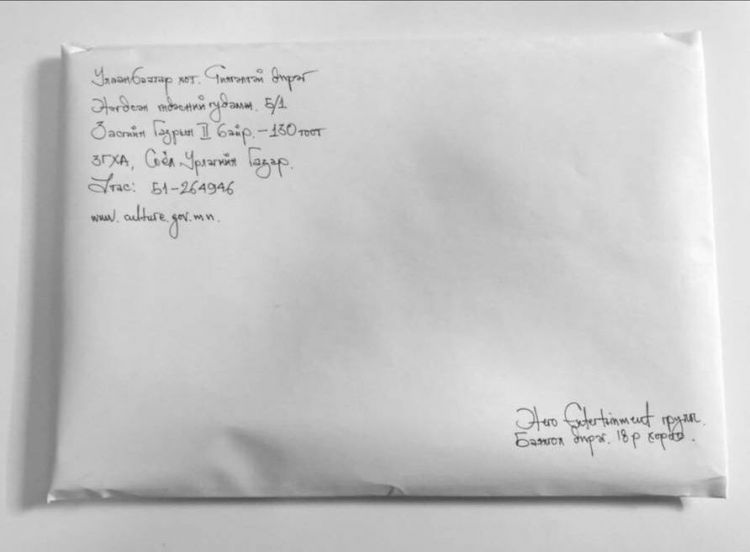 Улаанбаатар хот. Чингэлтэй дүүрэг
Нэгдсэн үндэсний гудамж. 5/1
Засгийн Газрын II байр. -130 тоот
ЗГХА, Соёл Урлагийн Газар.
Утас: 51-264946
www.culture.gov.mn.
Hero Entertainment групп.
Баянгол дүүрэг. 18р хороо.